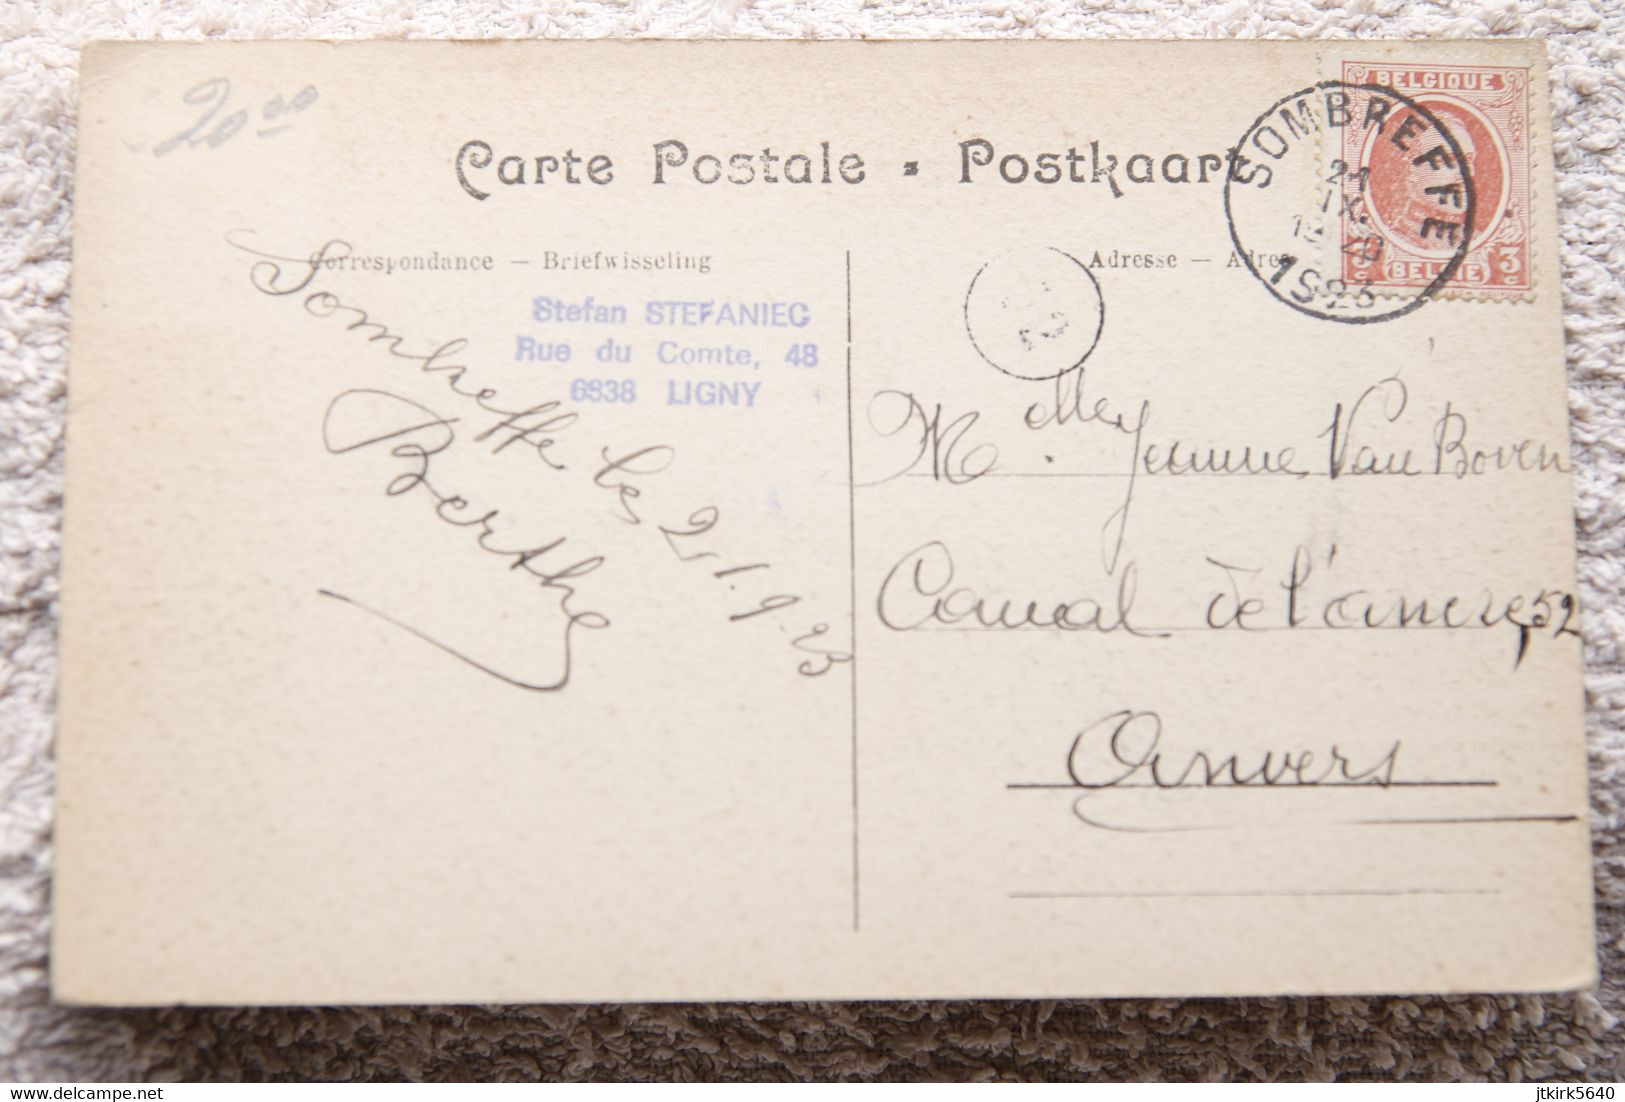 20⁰⁰
BELGIQUE
Carte Postale - Postkaart
SOMBREFFE
21
IX.
20
1923
3 c BELGIË 3 c
Correspondance — Briefwisseling
Adresse — Adres
Stefan STEFANIEC
Rue du Comte, 48
6338 LIGNY
Sombreffe le 21.9.23
Berthe
Melle Jeanne Van Boven
Canal de l'ancre, 52
Anvers
delcampe.net
jtkirk5640